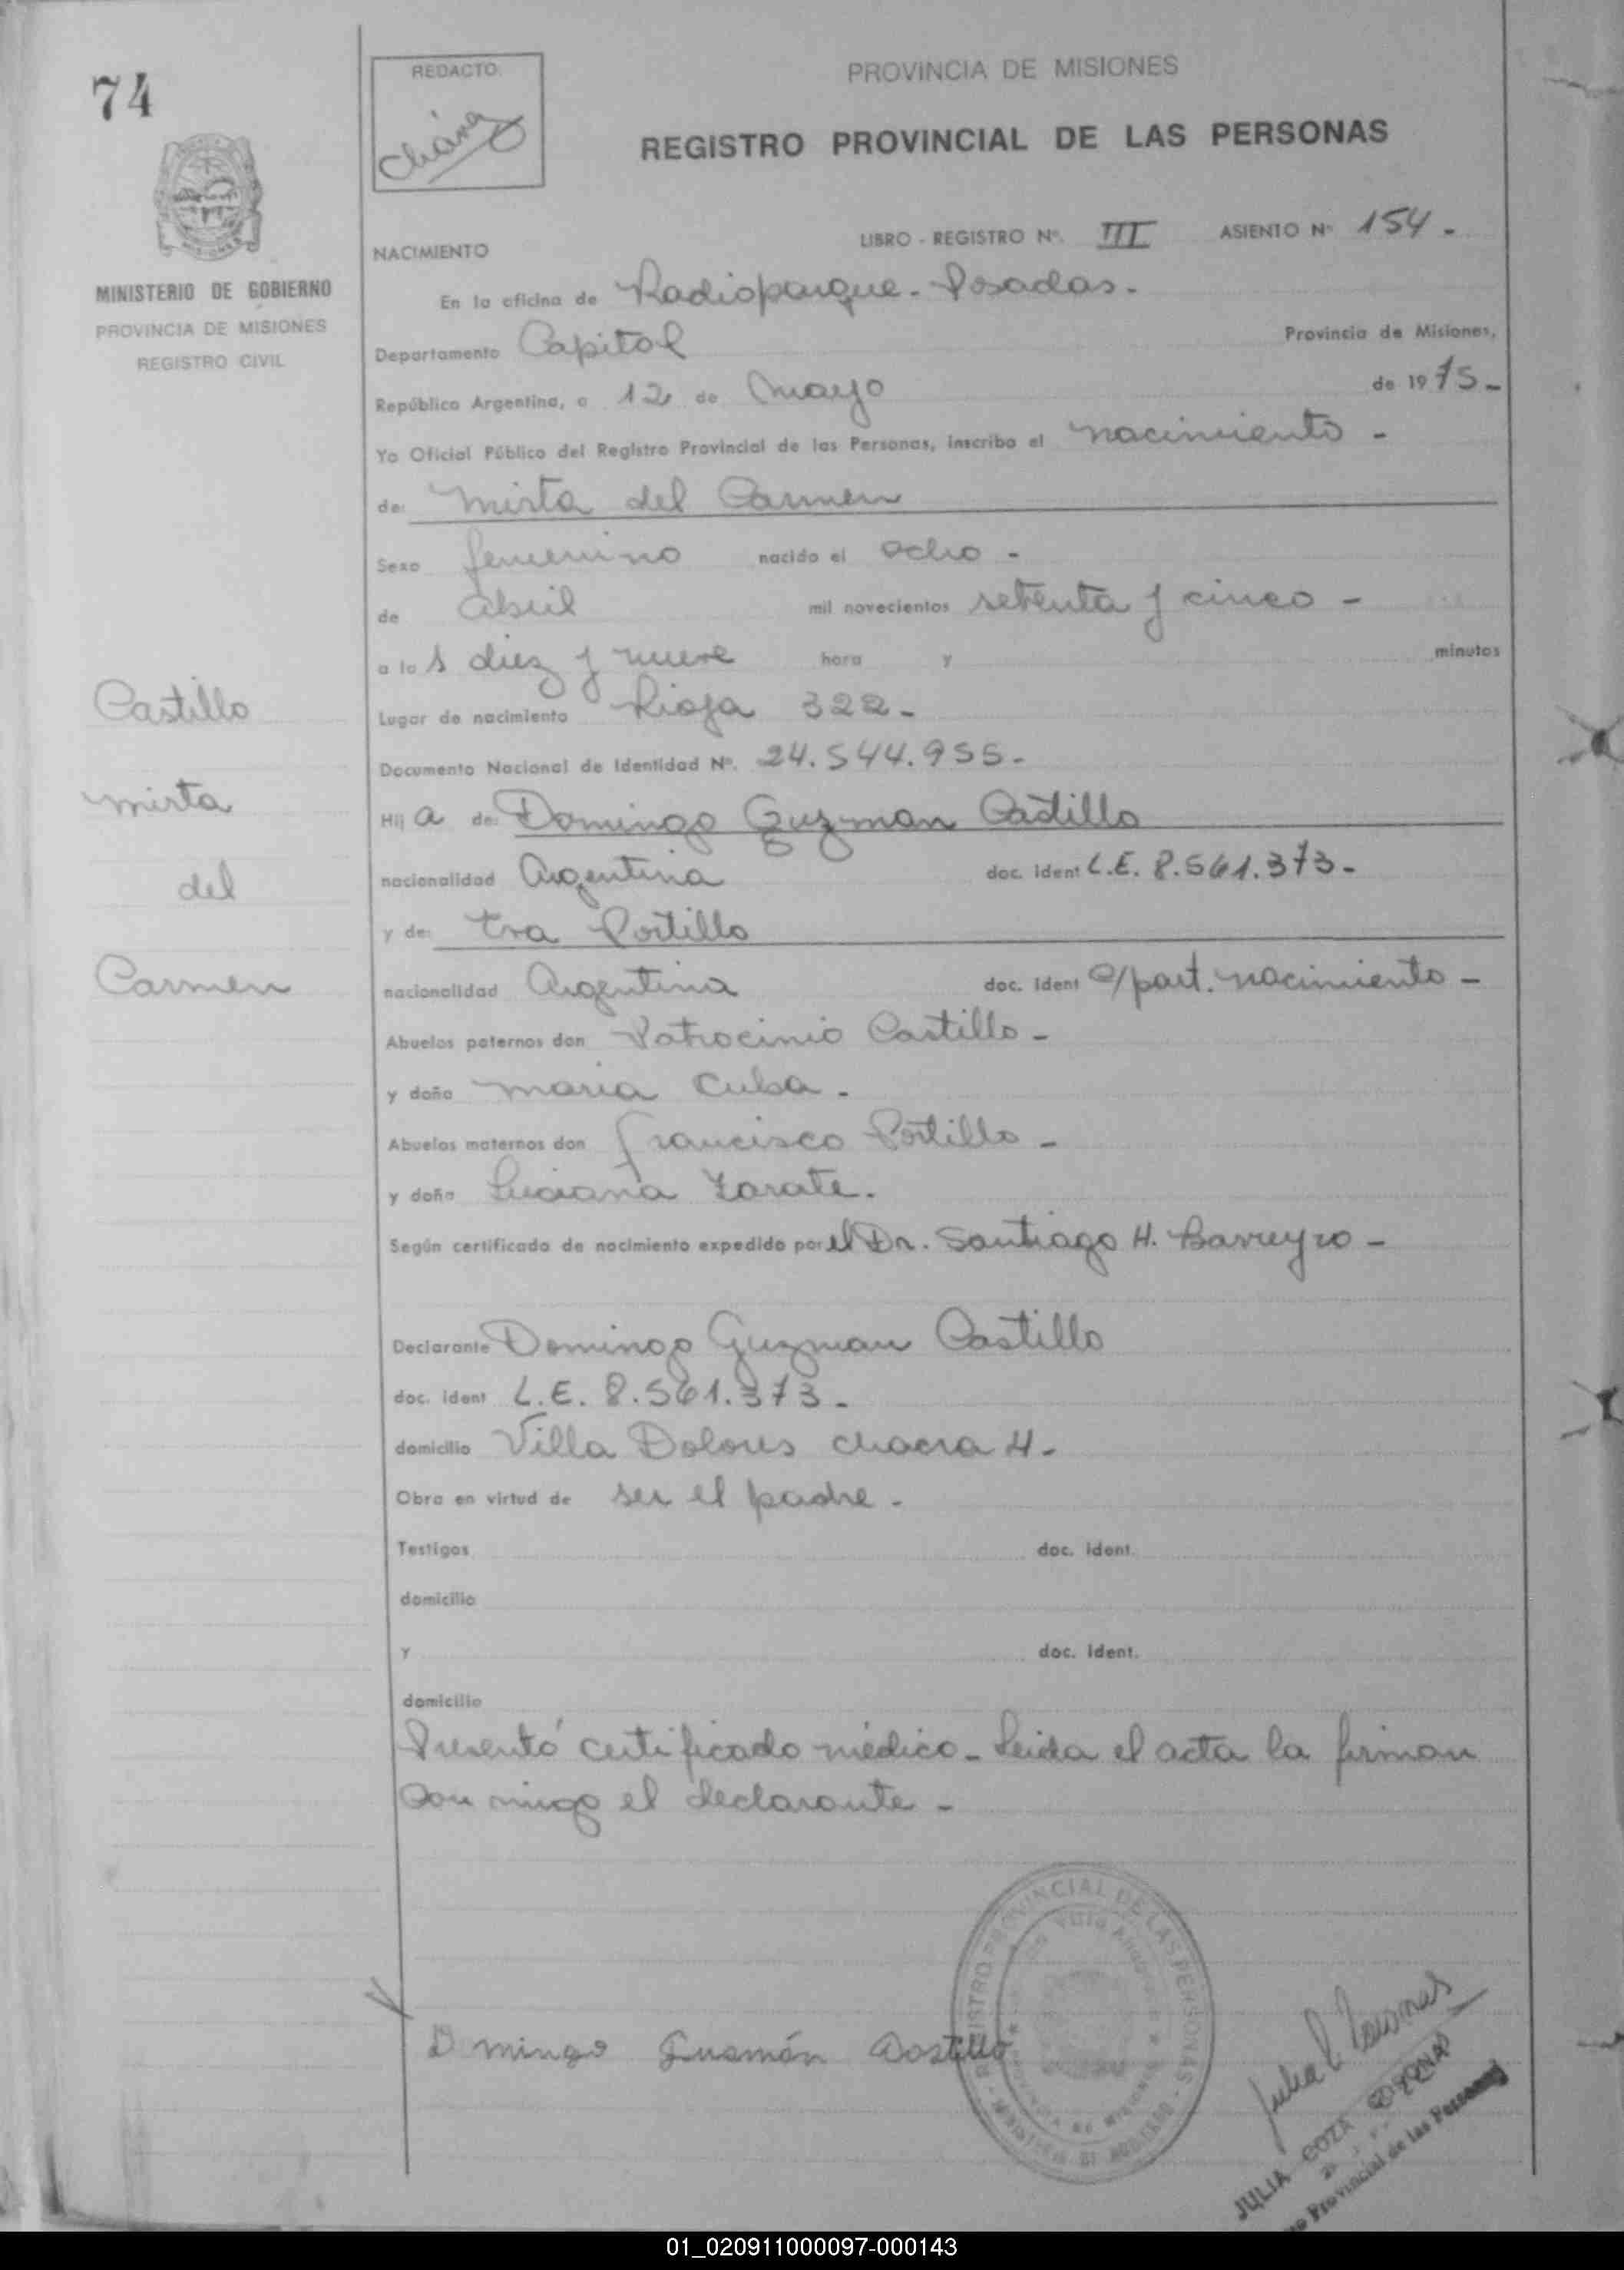 74
REDACTO.
PROVINCIA DE MISIONES
REGISTRO PROVINCIAL DE LAS PERSONAS
LIBRO - REGISTRO Nº. III ASIENTO Nº 154 -
NACIMIENTO
MINISTERIO DE GOBIERNO
PROVINCIA DE MISIONES
REGISTRO CIVIL
En la oficina de Radioparque - Posadas -
Departamento Capital Provincia de Misiones,
República Argentina, a 12 de Mayo de 1975 -
Yo Oficial Público del Registro Provincial de las Personas, inscribo el nacimiento -
de: Mirta del Carmen
Sexo femenino nacido el ocho -
de abril mil novecientos setenta y cinco -
a las diez y nueve hora y minutos
Lugar de nacimiento Rioja 322 -
Documento Nacional de Identidad Nº. 24.544.955 -
Hija de: Domingo Guzman Castillo
nacionalidad Argentina doc. ident L.E. 8.561.373 -
y de: Eva Portillo
nacionalidad Argentina doc. ident c/part. nacimiento -
Abuelos paternos don Patrocinio Castillo -
y doña Maria Cuba -
Abuelos maternos don Francisco Portillo -
y doña Luciana Zarate.
Según certificado de nacimiento expedido por el Dr. Santiago H. Barreyro -
Declarante Domingo Guzman Castillo
doc. ident L.E. 8.561.373 -
domicilio Villa Dolores chacra 4 -
Obra en virtud de ser el padre -
Testigos doc. ident.
domicilio
y doc. ident.
domicilio
Presentó certificado médico - Leida el acta la firman
conmigo el declarante -
Castillo
Mirta
del
Carmen
Domingo Gusmán Castillo
REGISTRO PROVINCIAL DE LAS PERSONAS
JULIA
Provincial de las Personas
01_020911000097-000143